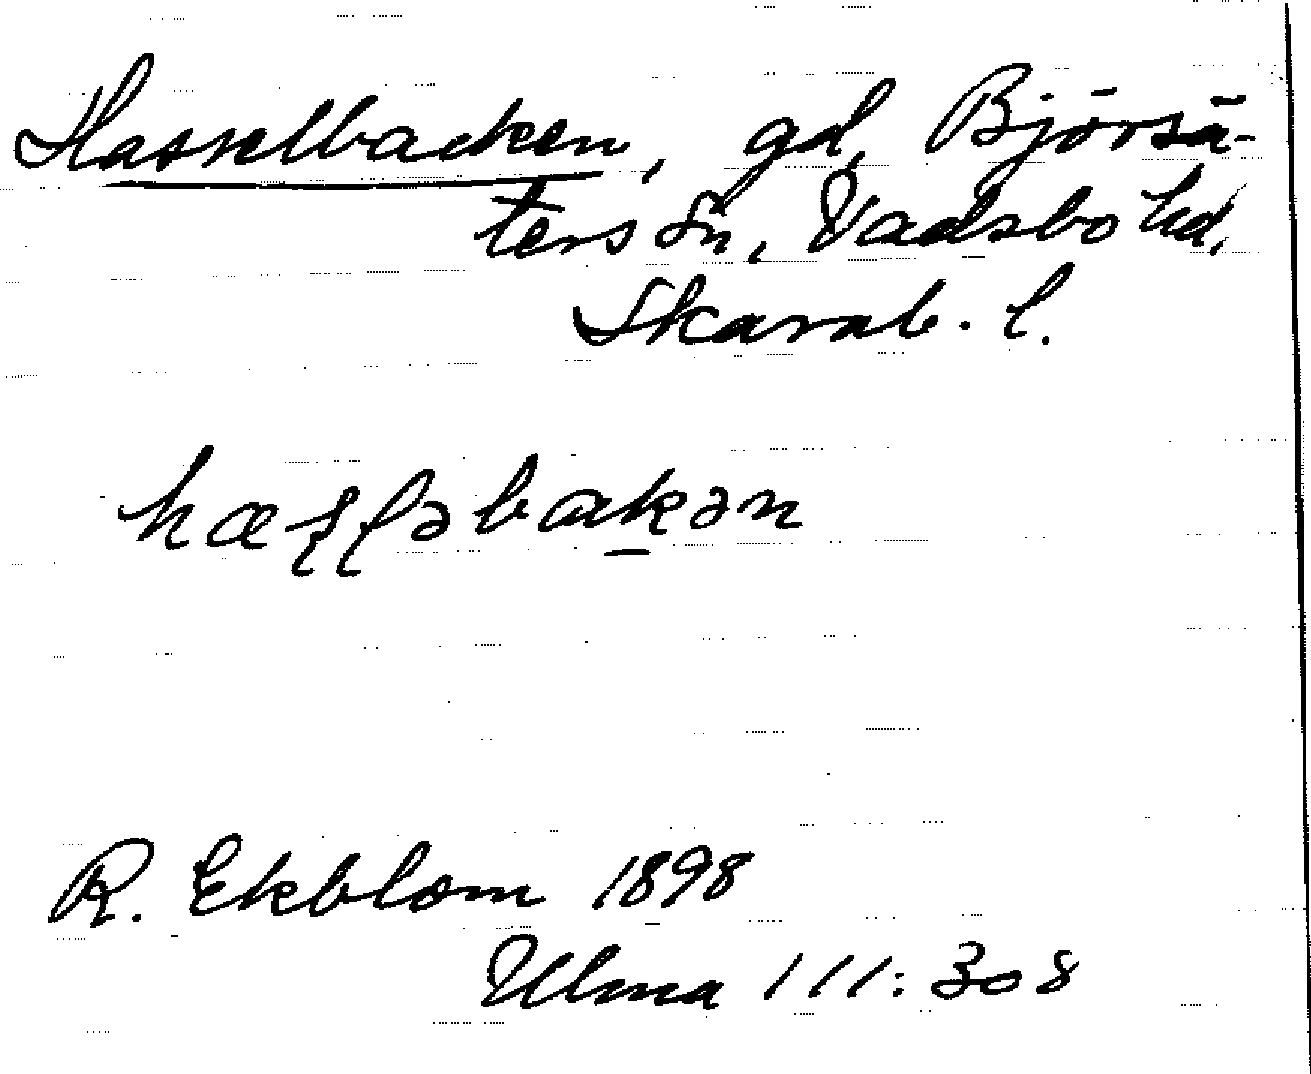 Hasselbacken, gd, Björsä-
ters sn, Vadsbo hd,
Skarab. l.
hæʂʂləbakən
R. Ekblom 1898
Ulma 111:308